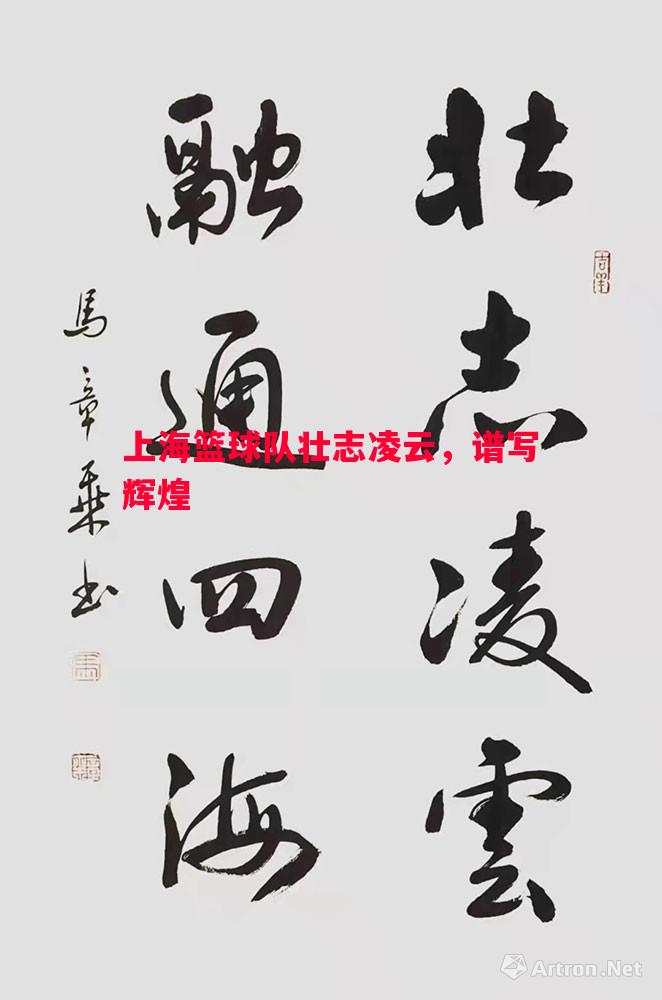 壮志凌雲
融通四海
馬章乘书
上海篮球队壮志凌云，谱写
辉煌
Artron.Net